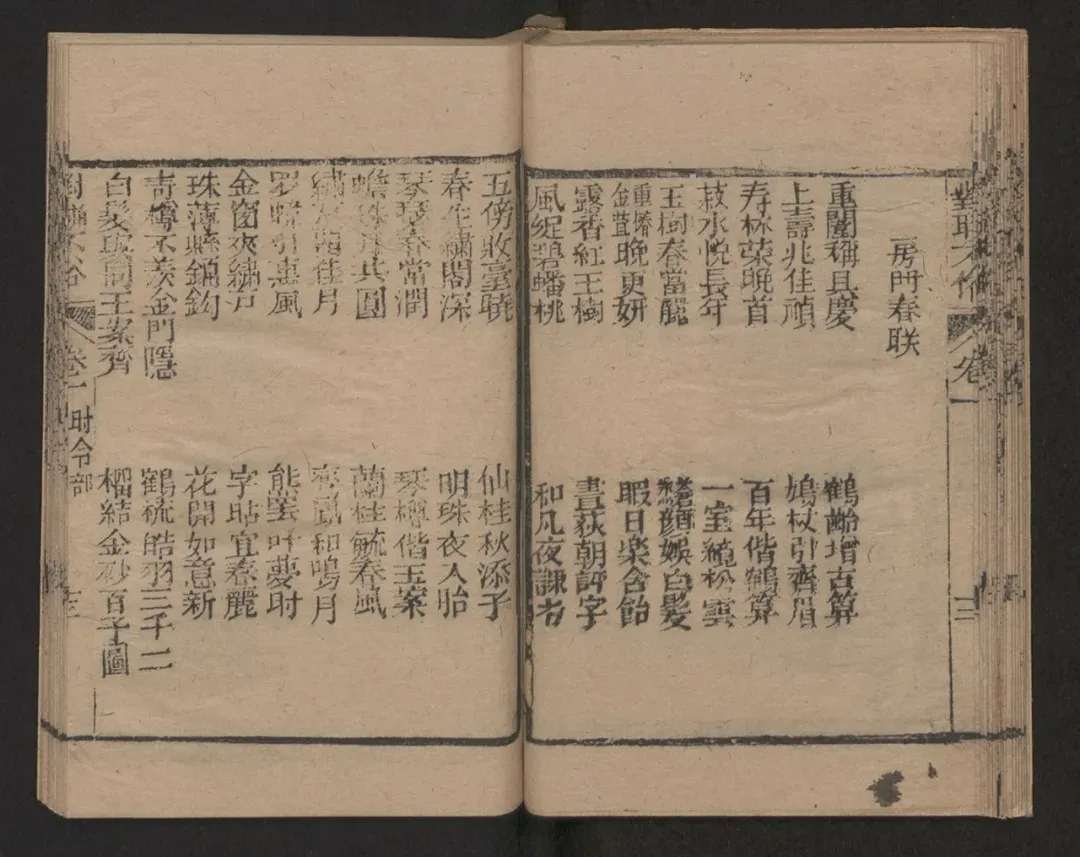 對聯不俗 卷一 十二
房門春联
重闈稱具慶
鶴齡增古算
上壽兆佳頑
鳩杖引齊眉
寿林荣晚首
百年偕鶴算
菽水悦長年
一室繞松雲
玉樹春當麗
顏娛白髮
金萱晚更妍
暇日樂含飴
露香紅玉樹
晝荻朝評字
風綻碧蟠桃
和凡夜課
五傍妝臺曉
仙桂秋添子
春生繡閣深
明珠夜入胎
琴瑟春當潤
琴樽偕玉案
蟾珠月共圓
蘭桂毓春風
佳月
和鳴月
引惠風
能罷叶夢时
金窗夾繡戶
字貼宜春麗
珠薄縣鋇鈎
花開如意新
青樽不羡金門隱
鶴梳皓羽三千二
白髮同玉案齊
榴結金砂百子圖
對聯不俗 卷一 时令部 十三